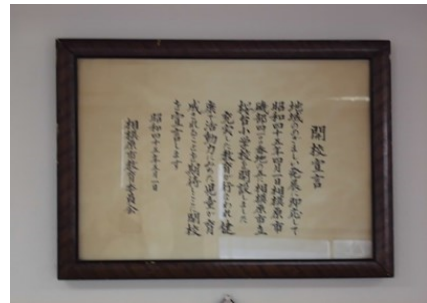 開校宣言
地域のめざましい発展に即応して
昭和四十五年四月一日相模原市
磯部四
相模原市立
桜台小学校を開設しました
充実した教育が行われ健
康で活動力にみちた児童が育
成されることを期待しここに開校
を宣言します
昭和四十五年五月一日
相模原市教育委員会